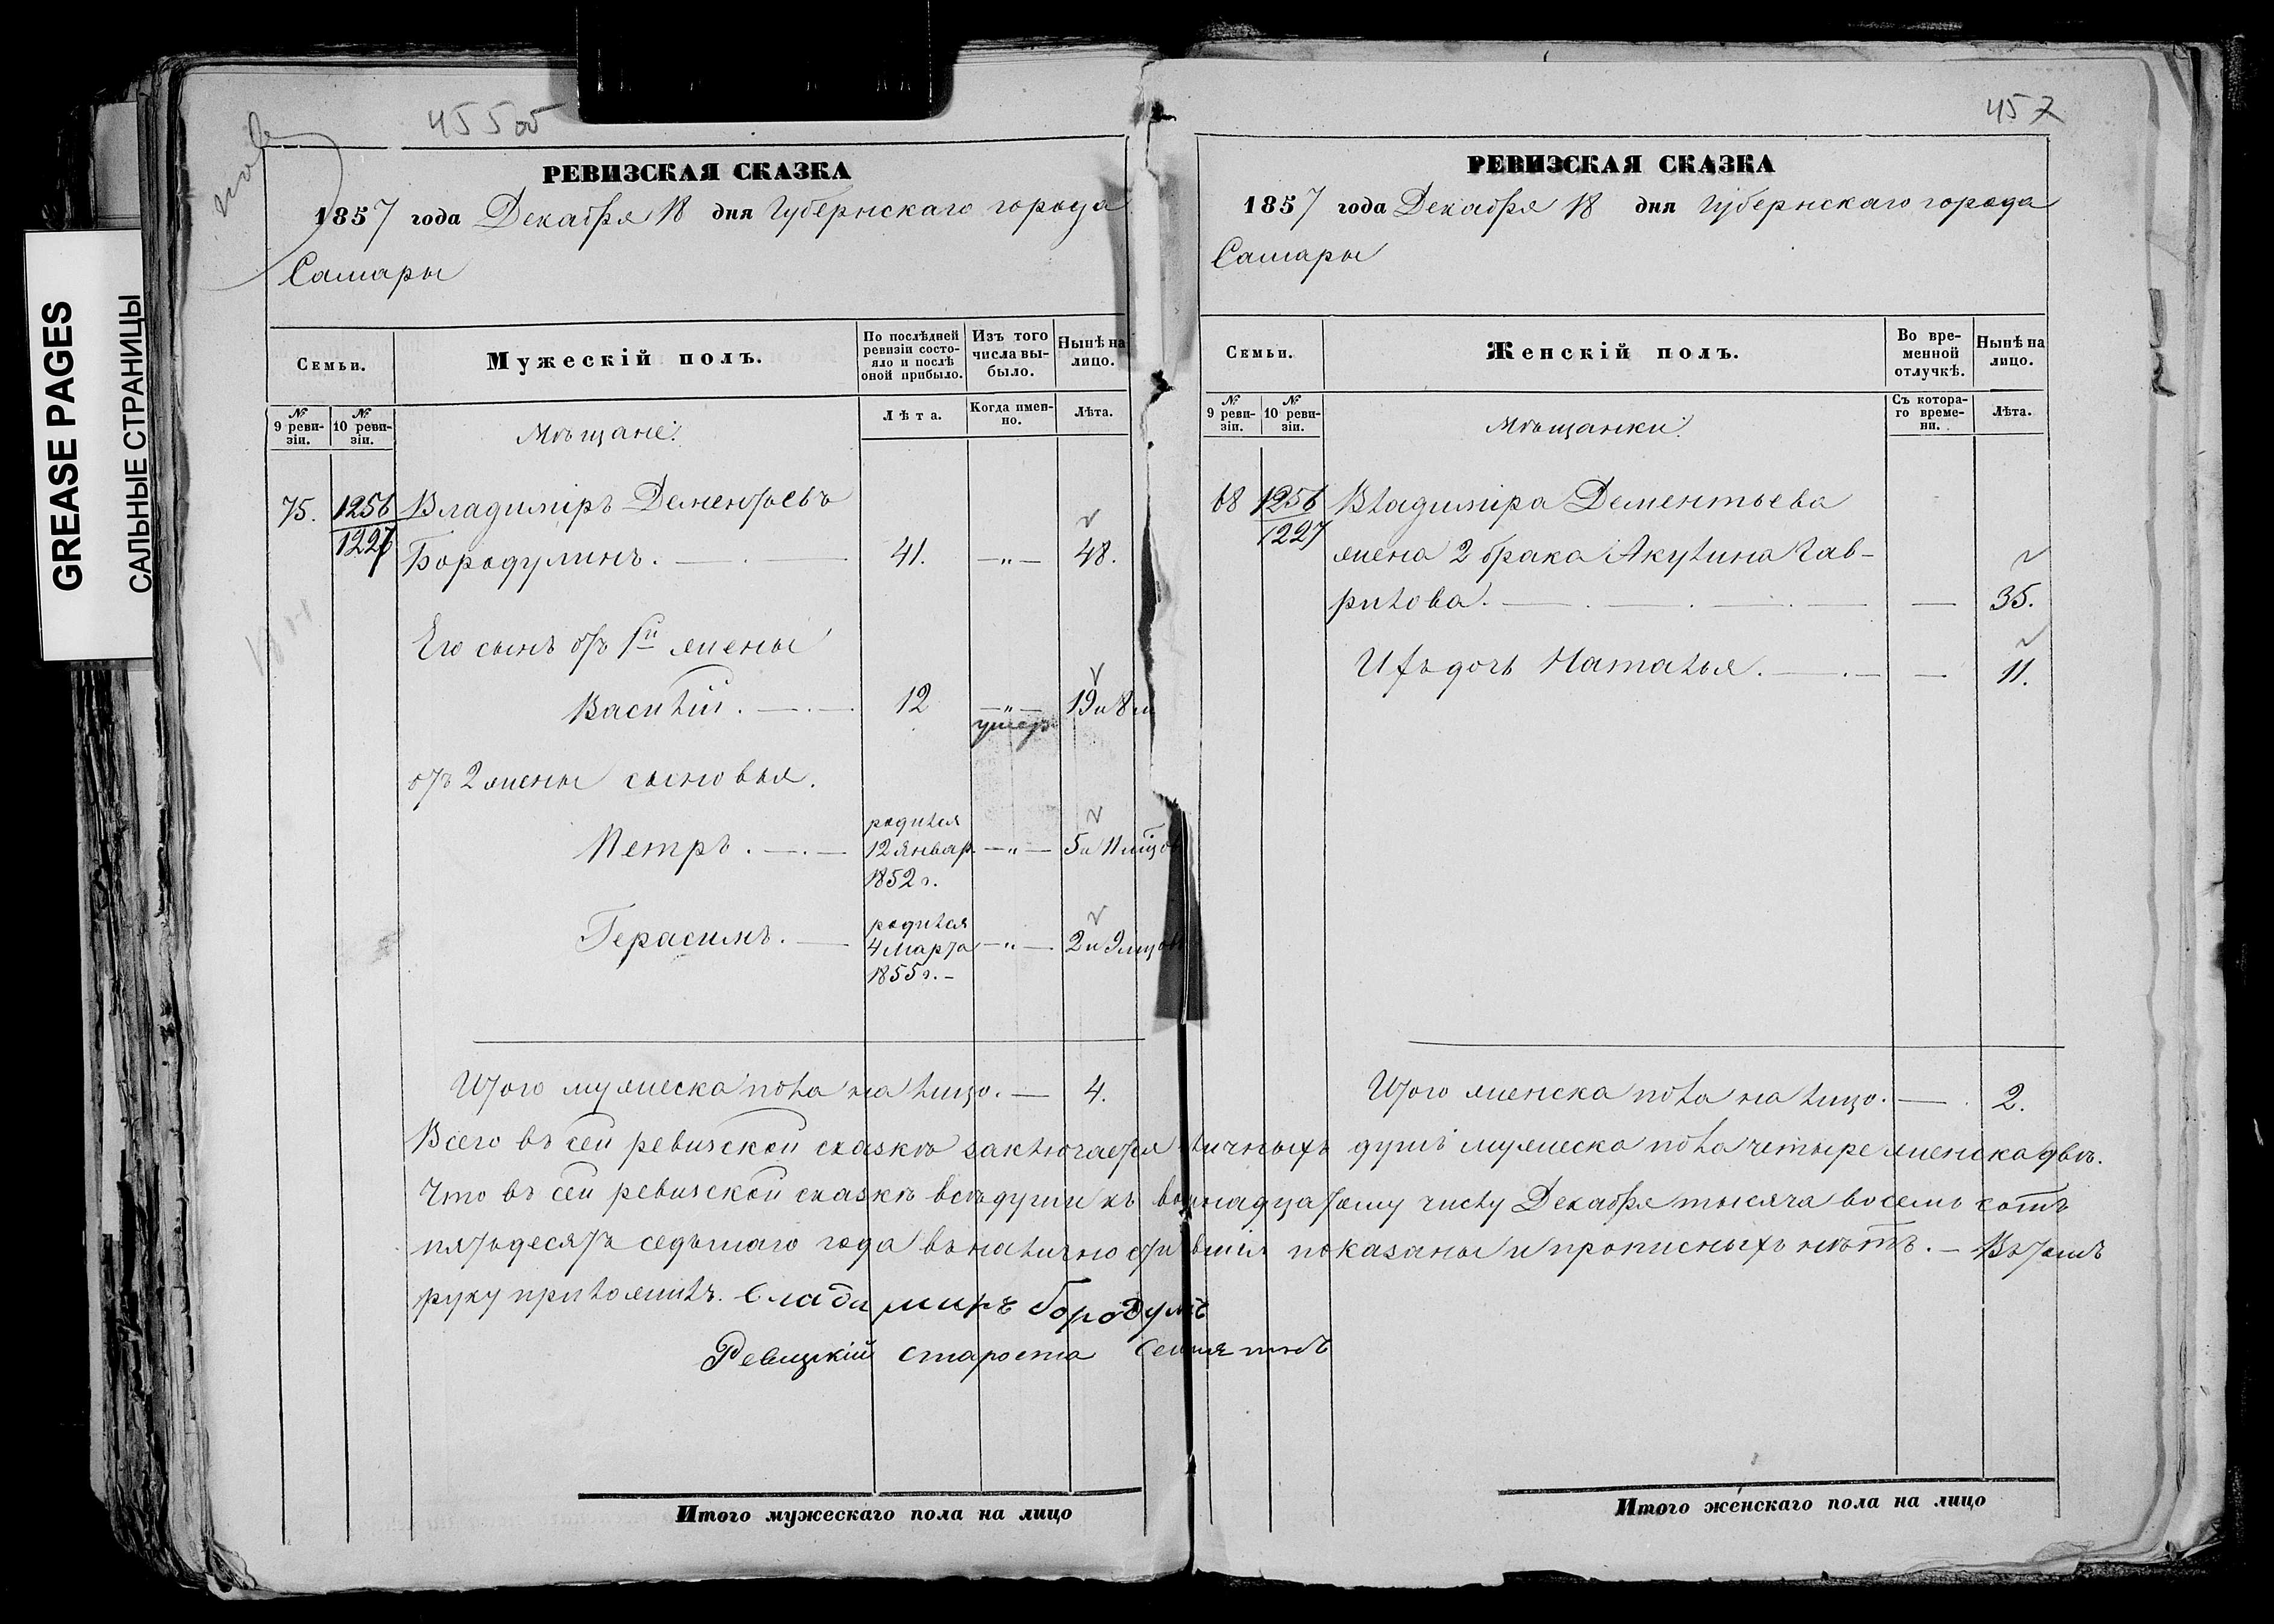 GREASE PAGES
САЛЬНЫЕ СТРАНИЦЫ
455об
РЕВИЗСКАЯ СКАЗКА
1857 года Декабря 18 дня Губернскаго города
Самары
Семьи.
Мужескій полъ.
По послѣдней ревизіи состояло и послѣ оной прибыло.
Изъ того числа выбыло.
Нынѣ на лицо.
№ 9 ревизіи.
№ 10 ревизіи.
Мѣщане:
Лѣта.
Когда именно.
Лѣта.
75. 1256 Владиміръ Дементьевъ
1227 Бородулинъ. 41. —„— 48.
Его сынъ отъ 1й жены
Василій. 12 —„— 19 и 8 м
умеръ
отъ 2 жены сыновья.
Петръ. родился 12 Январ. 1852 г. —„— 5 и 11 мцов
Герасимъ. родился 4 Марта 1855 г. —„— 2 и 9 мцов
Итого мужеска пола на лицо. — 4.
457
РЕВИЗСКАЯ СКАЗКА
1857 года Декабря 18 дня Губернскаго города
Самары
Семьи.
Женскій полъ.
Во временной отлучкѣ.
Нынѣ на лицо.
№ 9 ревизіи.
№ 10 ревизіи.
Мѣщанки:
Съ котораго времени.
Лѣта.
68 1256 Владиміра Дементьева
1227 жена 2 брака Акулина Гав-
рилова. — 35.
Ихъ дочь Наталья. — 11.
Итого женска пола на лицо. — 2.
Всего въ сей ревизской сказкѣ заключается личныхъ душъ мужеска пола четыре женска двѣ.
Что въ сей ревизской сказкѣ всѣ души къ восмнадцатому числу Декабря тысяча восемь сотъ
пятьдесятъ седьмаго года въ наличности показаны и прописныхъ нѣтъ. — Въ томъ
руку приложилъ. владимиръ бородулъ
Ревизкій староста
Итого мужескаго пола на лицо
Итого женскаго пола на лицо